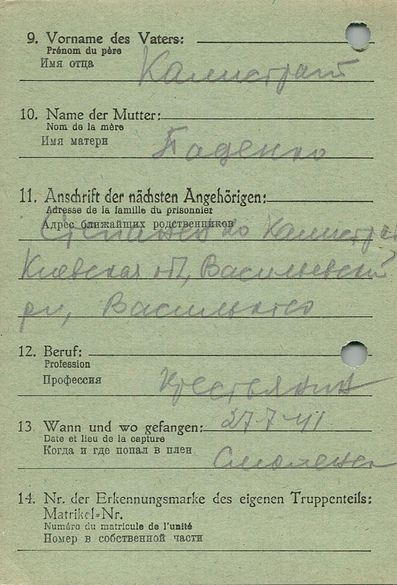 9. Vorname des Vaters:
Prénom du père
Имя отца
Калистрат
10. Name der Mutter:
Nom de la mère
Имя матери
Баденко
11. Anschrift der nächsten Angehörigen:
Adresse de la famille du prisonnier
Адрес ближайших родственников
Калистрат
Киевская обл, Васильевский
12. Beruf:
Profession
Профессия
Крестьянин
13. Wann und wo gefangen:
27-7-41
Date et lieu de la capture
Когда и где попал в плен
Смоленск
14. Nr. der Erkennungsmarke des eigenen Truppenteils:
Matrikel-Nr.
Numéro du matricule de l'unité
Номер в собственной части